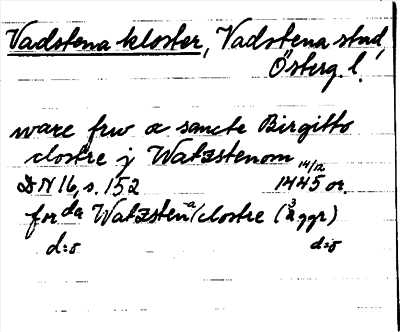 Vadstena kloster, Vadstena stad,
Österg. l.
ware frw a sancte Birgitto
clostre j Watzstenom
14/12
DN 16, s. 152 1445 or.
for da Watzsten-a/clostre (3 ggr)
d:o d:o